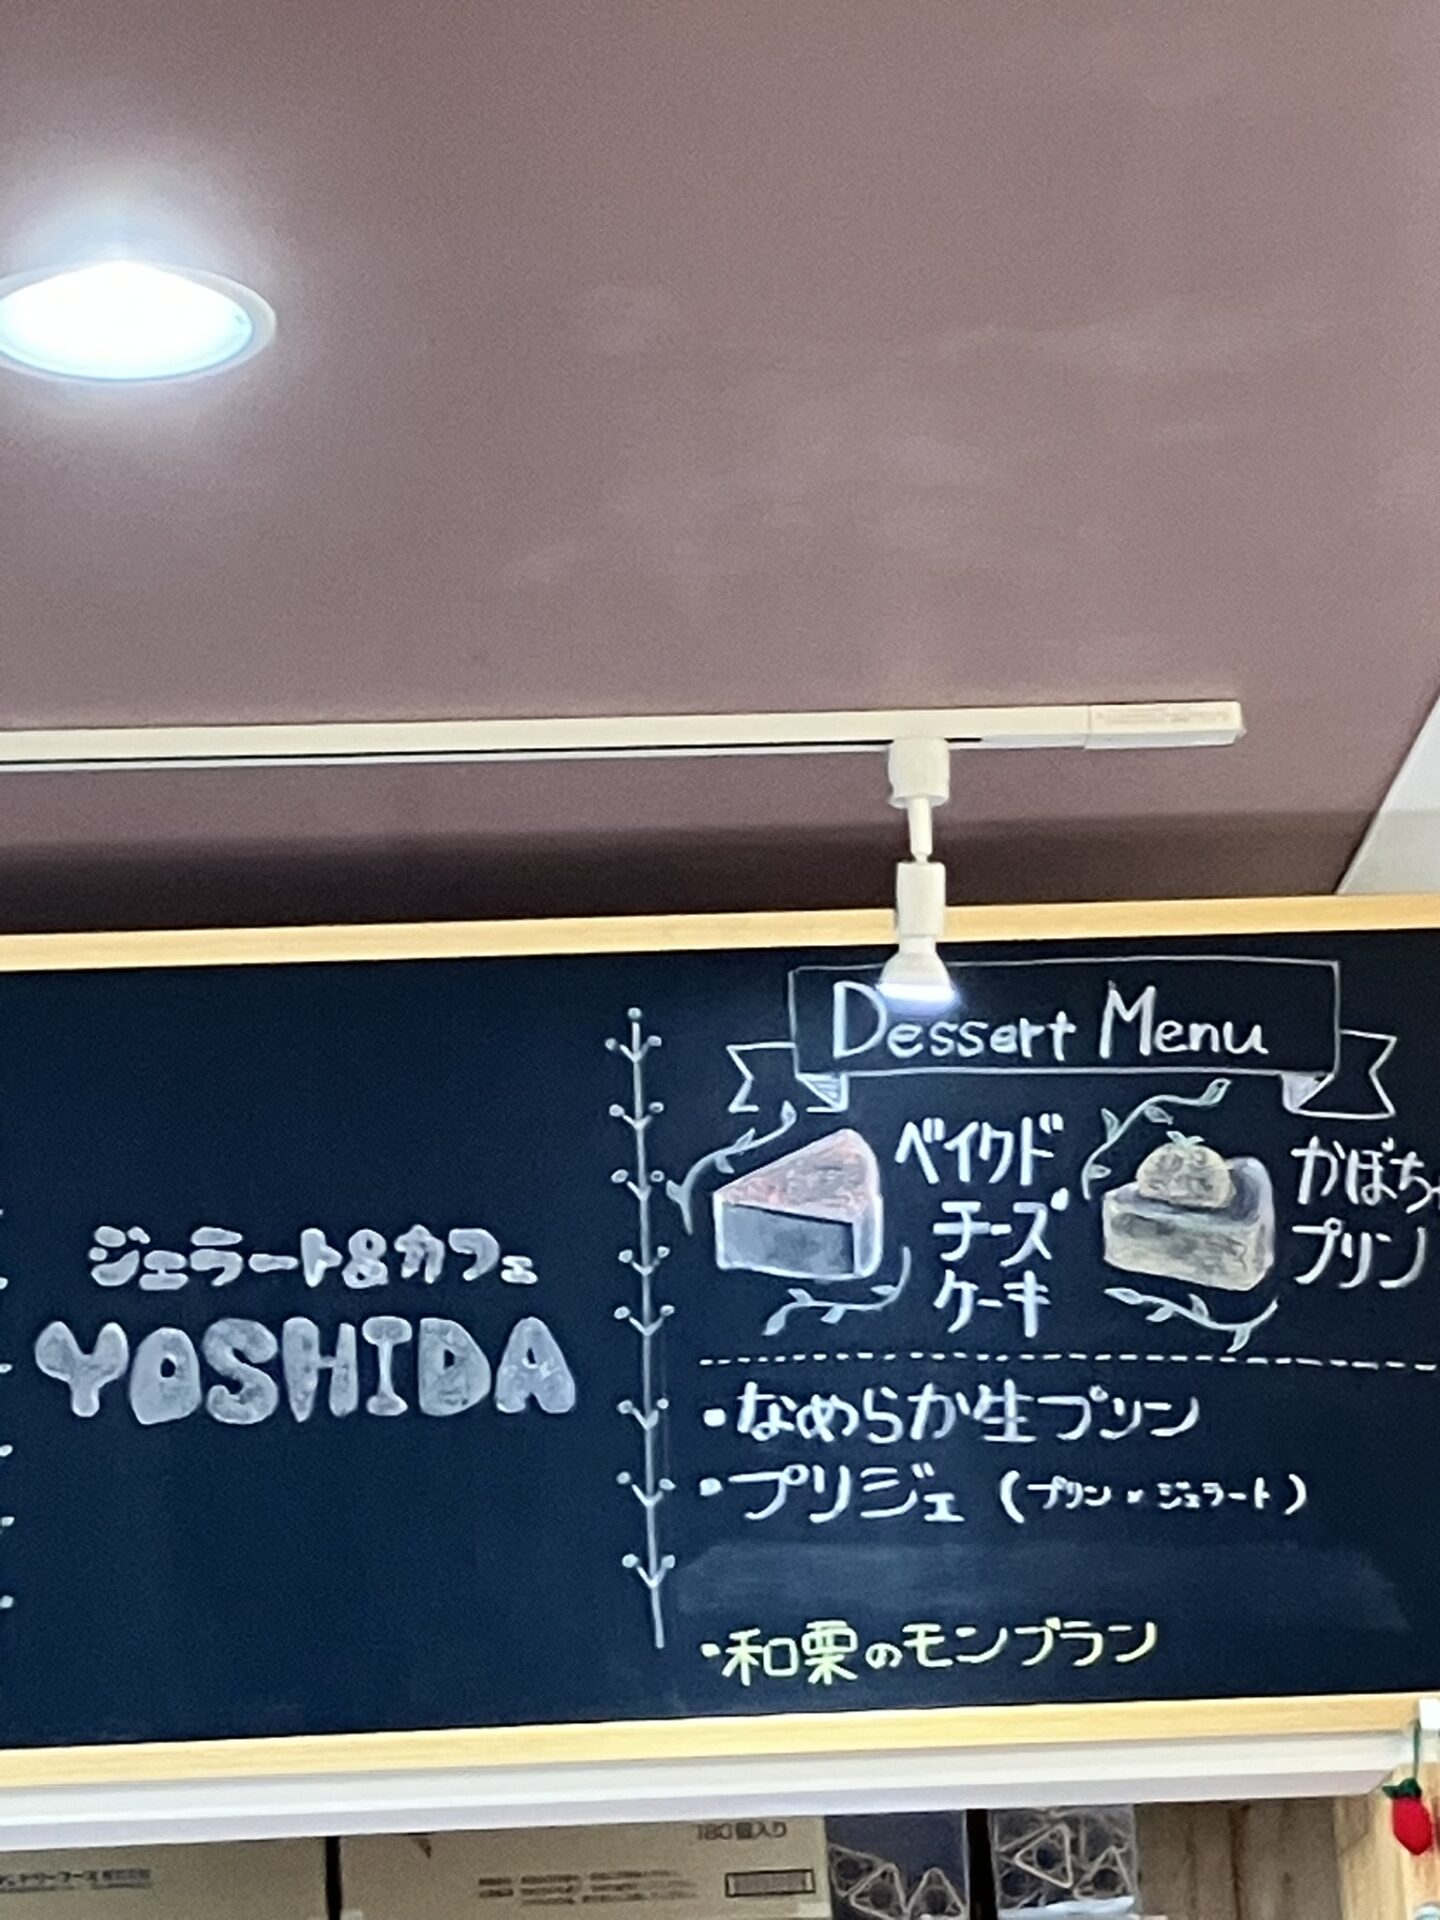 ジェラート&カフェ
YOSHIDA
Dessert Menu
ベイクド
チーズ
ケーキ
かぼち
プリン
・なめらか生プリン
・プリジェ (プリン×ジェラート)
・和栗のモンブラン
180個入り